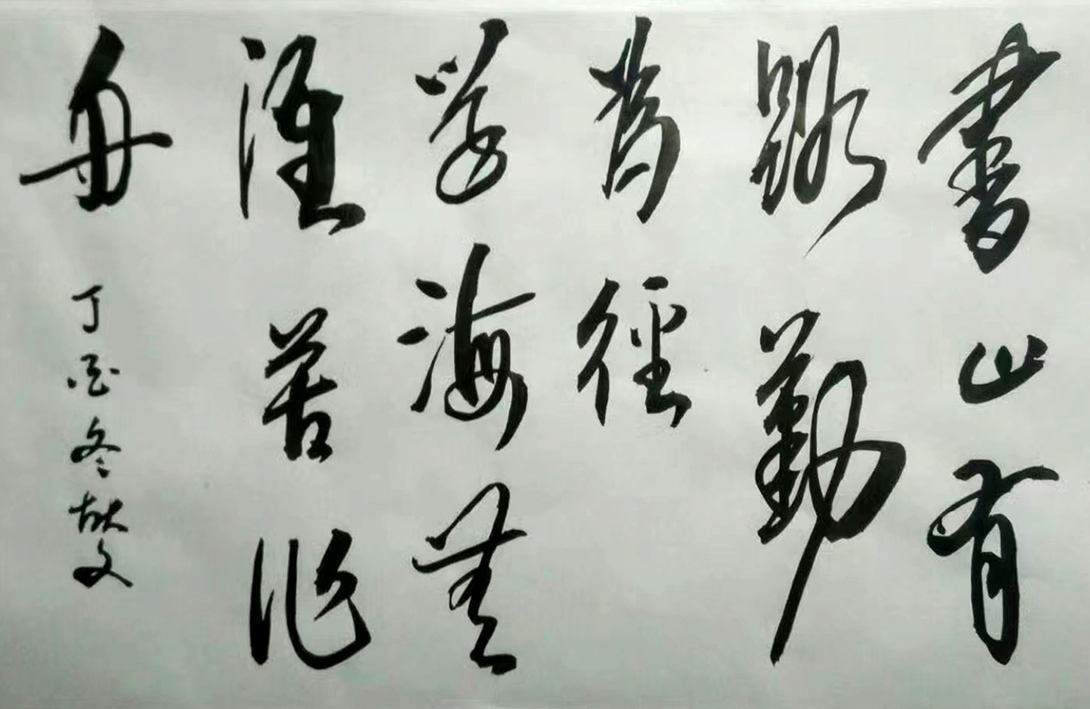 書山有
路勤
為徑
學海無
涯苦作
舟
丁酉冬文